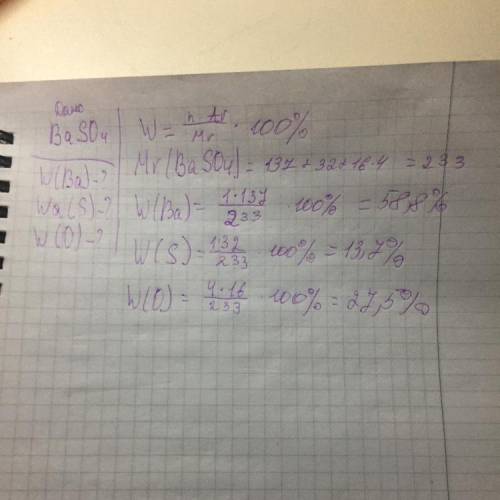 Дано
BaSO4
W(Ba)-?
Wa(S)-?
W(O)-?
W = n·Ar/Mr · 100%
Mr(BaSO4) = 137+32+16·4 = 233
W(Ba) = 1·137/233 · 100% = 58,8%
W(S) = 1·32/233 · 100% = 13,7%
W(O) = 4·16/233 · 100% = 27,5%